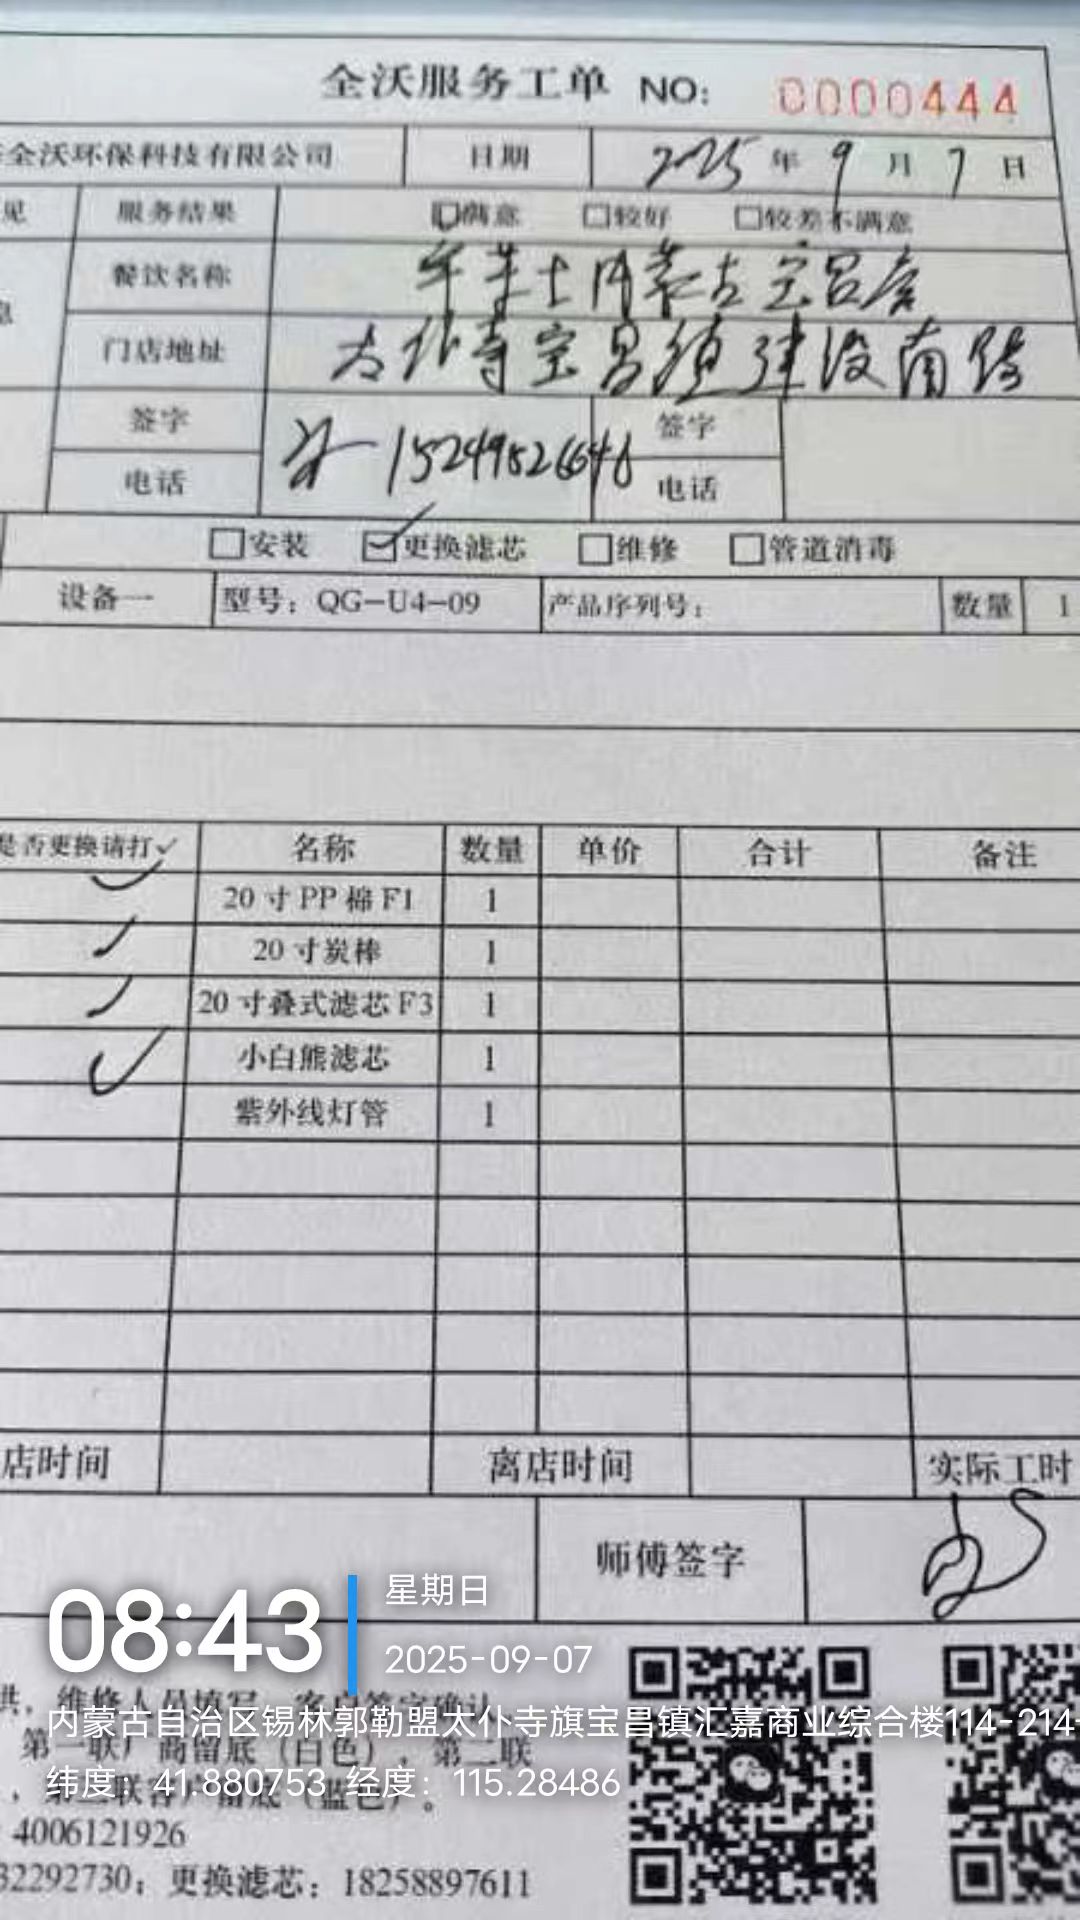 全沃服务工单 NO: 0000444
全沃环保科技有限公司 日期 2025 年 9 月 7 日
见 服务结果 满意 较好 较差不满意
餐饮名称 华莱士内蒙古宝昌店
门店地址 太仆寺宝昌镇建设南路
签字 签字
15249526646
电话 电话
安装 更换滤芯 维修 管道消毒
设备一 型号：QG-U4-09 产品序列号： 数量 1
是否更换请打✓ 名称 数量 单价 合计 备注
✓ 20寸PP棉F1 1
✓ 20寸炭棒 1
✓ 20寸叠式滤芯F3 1
✓ 小白熊滤芯 1
紫外线灯管 1
店时间 离店时间 实际工时
师傅签字
08:43 星期日
2025-09-07
内蒙古自治区锡林郭勒盟太仆寺旗宝昌镇汇嘉商业综合楼114-214-
纬度：41.880753 经度：115.28486
4006121926
32292730；更换滤芯：18258897611